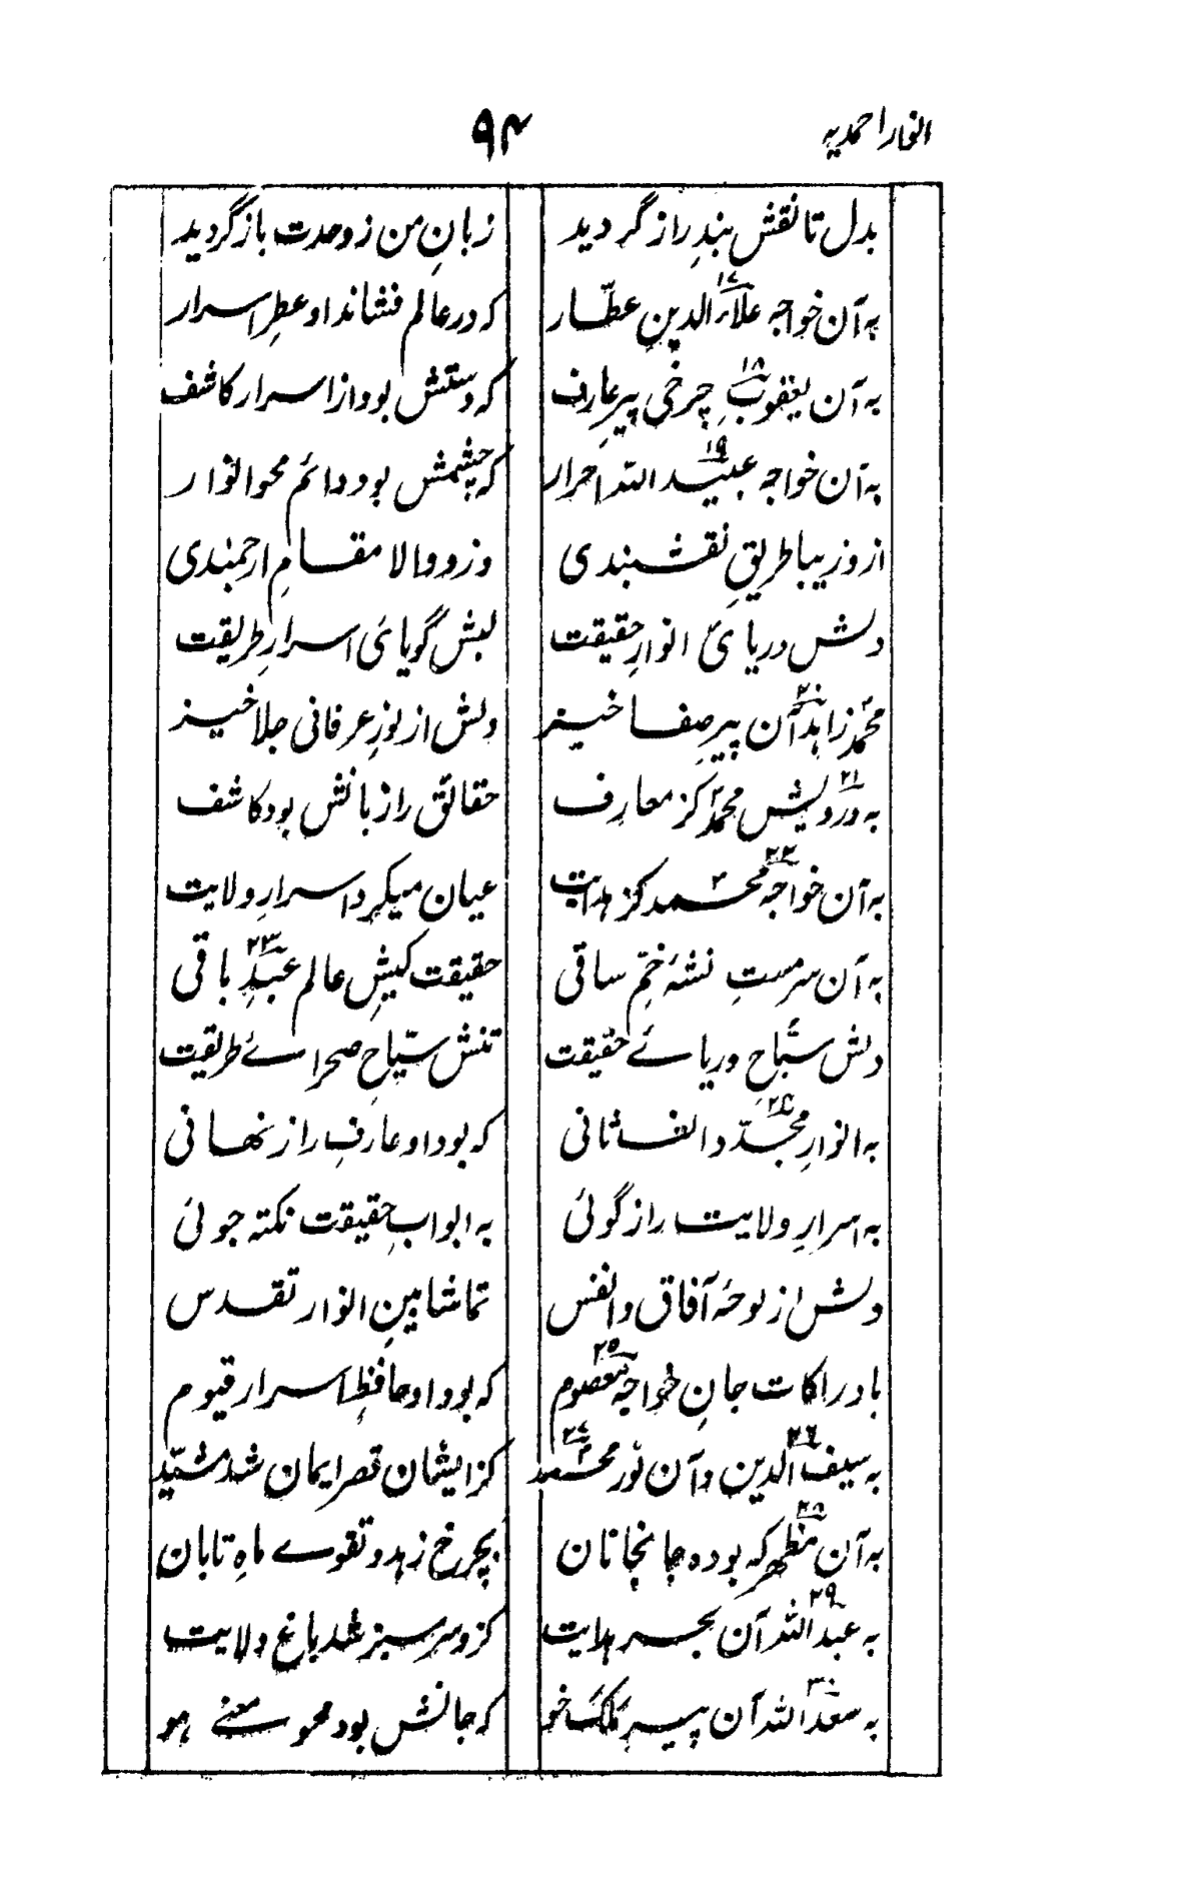 انوار احمدیہ
۹۴
بدل تا نقش بندِ راز گردید زبانِ من ز وحدت باز گردید
بہ آن خواجہ علاء۱۷ الدین عطّار کہ در عالم فشاند او عطرِ اسرار
بہ آن یعقوبِ۱۸ چرخی پیرِ عارف کہ دستش بود از اسرار کاشف
بہ آن خواجہ عبید۱۹ اللہ احرار کہ چشمش بود دائم محو انوار
ازو زیبا طریقِ نقشبندی وزو والا مقامِ ارجمندی
دلش دریائ انوارِ حقیقت لبش گویائ اسرارِ طریقت
محمّد زاہد۲۰ آن پیرِ صفا خیز دلش از نورِ عرفانی جلا خیز
بہ درویش۲۱ محمدؐ کز معارف حقائق را زبانش بود کاشف
بہ آن خواجہ۲۲ محمد کز ہدایت عیان میکرد اسرارِ ولایت
بہ آن سرمستِ نشۂ خمِ ساقی حقیقت کیشِ عالم عبدِ۲۳ باقی
دلش سبّاحِ دریائے حقیقت تنش سیّاحِ صحرائے طریقت
بہ انوارِ مجدّد۲۴ الف ثانی کہ بود او عارفِ راز نہانی
بہ اسرارِ ولایت راز گوئی بہ ابوابِ حقیقت نکتہ جوئی
دلش از لوحۂ آفاق و انفس تماشا بینِ انوار تقدس
بادراکات جانِ خواجہ معصوم۲۵ کہ بود او حافظِ اسرار قیوم
بہ سیف۲۶ الدین و آن نور محمد۲۷ کز ایشان قصر ایمان شد مشیّد
بہ آن مظہر۲۸ کہ بودہ جانجانان بچرخ زہد و تقوے ماہِ تابان
بہ عبد۲۹ اللہ آن بحر ہدایت کزو سرسبز شد باغ ولایت
بہ سعد۳۰ اللہ آن پیرِ ملک خو کہ جانش بود محو معنئے ہو